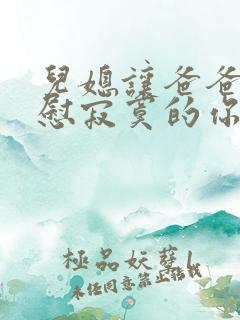 兒媳讓爸爸
慰寂寞的你
極品妖孽1
未經同意禁止